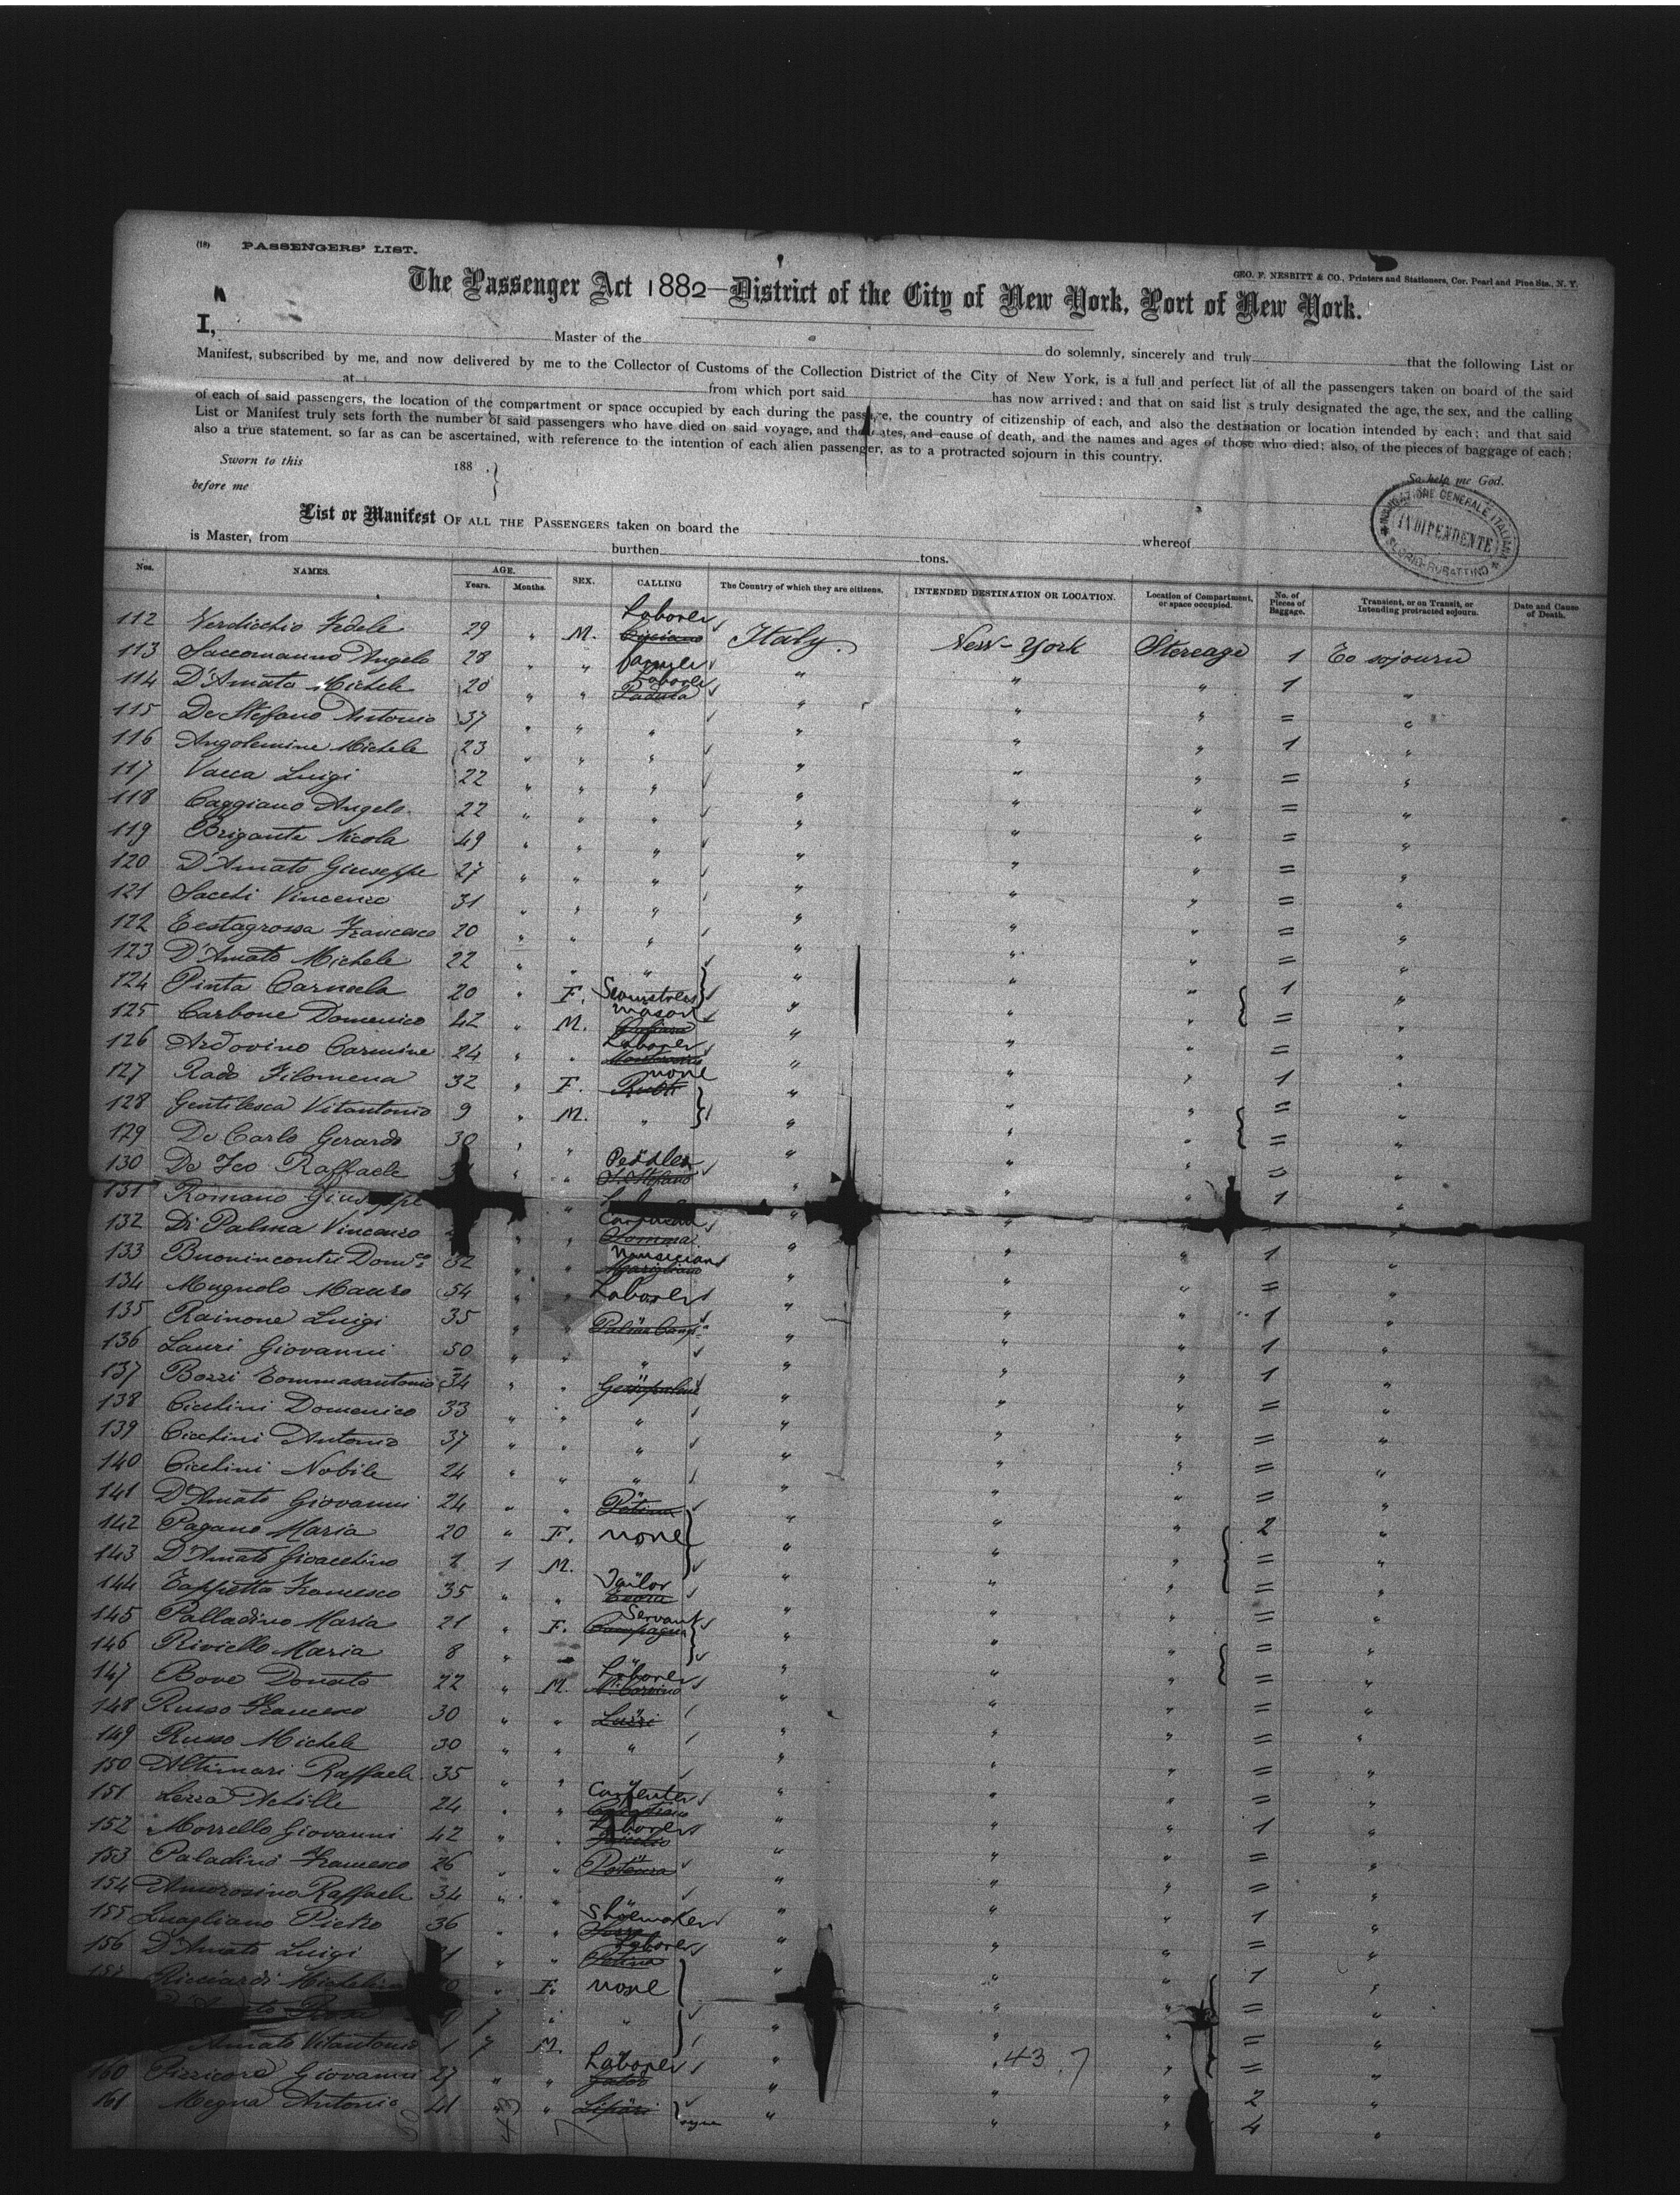 (18) PASSENGERS' LIST.
GEO. F. NESBITT & CO., Printers and Stationers, Cor. Pearl and Pine Sts., N. Y.
The Passenger Act 1882—District of the City of New York, Port of New York.
I, Master of the do solemnly, sincerely and truly that the following List or
Manifest, subscribed by me, and now delivered by me to the Collector of Customs of the Collection District of the City of New York, is a full and perfect list of all the passengers taken on board of the said
at from which port said has now arrived; and that on said list is truly designated the age, the sex, and the calling
of each of said passengers, the location of the compartment or space occupied by each during the passage, the country of citizenship of each, and also the destination or location intended by each; and that said
List or Manifest truly sets forth the number of said passengers who have died on said voyage, and the dates, and cause of death, and the names and ages of those who died; also, of the pieces of baggage of each;
also a true statement, so far as can be ascertained, with reference to the intention of each alien passenger, as to a protracted sojourn in this country.
Sworn to this 188 . }
before me
So help me God.
NAVIGAZIONE GENERALE ITALIANA
INDIPENDENTE
FLORIO-RUBATTINO
List or Manifest OF ALL THE PASSENGERS taken on board the whereof
is Master, from burthen tons.
Nos. NAMES. AGE. Years. Months. SEX. CALLING The Country of which they are citizens. INTENDED DESTINATION OR LOCATION. Location of Compartment, or space occupied. No. of Pieces of Baggage. Transient, or on Transit, or Intending protracted sojourn. Date and Cause of Death.
112 Verdicchio Fedele 29 " M. Laborer Italy. New-York Steerage 1 To sojourn
113 Saccomanno Angelo 28 " " farmer " " " 1 "
114 D'Amato Michele 20 " " Laborer Padula " " " = "
115 De Stefano Antonio 37 " " " " " " 1 "
116 Angolemine Michele 23 " " " " " " = "
117 Vacca Luigi 22 " " " " " " = "
118 Caggiano Angelo 22 " " " " " " = "
119 Brigante Nicola 49 " " " " " " = "
120 D'Amato Giuseppe 27 " " " " " " = "
121 Sacchi Vincenzo 31 " " " " " " = "
122 Testagrossa Francesco 20 " " " " " " = "
123 D'Amato Michele 22 " " " " " " 1 "
124 Pinta Carmela 20 " F. Seamstress " " " = "
125 Carbone Domenico 42 " M. Mason " " " = "
126 Ardovino Carmine 24 " " Laborer " " " 1 "
127 Rado Filomena 32 " F. none " " " = "
128 Gentilesca Vitantonio 9 " M. " " " " = "
129 De Carlo Gerardo 30 " " " " " =
130 De Feo Raffaele " " Pedler S. Stefano " " " 1 "
131 Romano Giuseppe " "
132 Di Palma Vincenzo " " Somma " " " 1 "
133 Buonincontri Dom.co 32 " " Musician Marigliano " " " = "
134 Mugnolo Mauro 54 " " Laborer " " " 1 "
135 Rainone Luigi 35 " " " " " 1 "
136 Lauri Giovanni 50 " " " " " " 1 "
137 Bozzi Tommasantonio 34 " " " " " = "
138 Cicchini Domenico 33 " " " " " " = "
139 Cicchini Antonio 37 " " " " " " = "
140 Cicchini Nobile 24 " " " " " " = "
141 D'Amato Giovanni 24 " " Petina " " " 2 "
142 Pagano Maria 20 " F. none " " " = "
143 D'Amato Gioacchino 1 M. " " " = "
144 Tappetta Francesco 35 " " Tailor " " " = "
145 Palladino Maria 21 " F. Servant Campagna " " " = "
146 Riviello Maria 8 " " " " = "
147 Bove Donato 22 " M. Laborer " " " = "
148 Russo Francesco 30 " " Luzzi " " " = "
149 Russo Michele 30 " " " " " " = "
150 Altimari Raffaele 35 " " " " " = "
151 Lezza Achille 24 " " Carpenter " " " 1 "
152 Morrello Giovanni 42 " " Laborer " " " = "
153 Paladino Francesco 26 " " Potenza " " " = "
154 Amorosino Raffaele 34 " " " " " 1 "
155 Luagliano Pietro 36 " " Shoemaker " " " = "
156 D'Amato Luigi " " Laborer Petina " " " 1 "
Ricciardi Michelina " F. none " " " = "
7 " " " " " = "
Amato Vitantonio 1 7 M. " " " = "
160 Pizzicora Giovanni 27 " " Laborer " 43.7 " 2 "
161 Megna Antonio 41 " " Lipari " " " 4 "
43 7